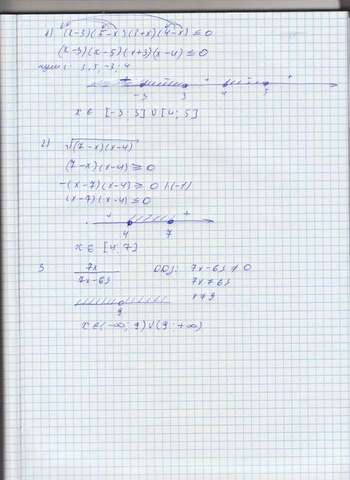 1) (x-3)(5-x)(3+x)(4-x) ≤ 0
(x-3)(x-5)(x+3)(x-4) ≤ 0
3, 5, -3, 4
-3 3 4 5
x ∈ [-3; 3] ∪ [4; 5]
2) √(7-x)(x-4)
(7-x)(x-4) ≥ 0
-(x-7)(x-4) ≥ 0 | (-1)
(x-7)(x-4) ≤ 0
+ - +
4 7
x ∈ [4; 7]
3 7x / 7x-63 ОДЗ: 7x-63 ≠ 0
7x ≠ 63
x ≠ 9
9
x ∈ (-∞; 9) ∪ (9; +∞)